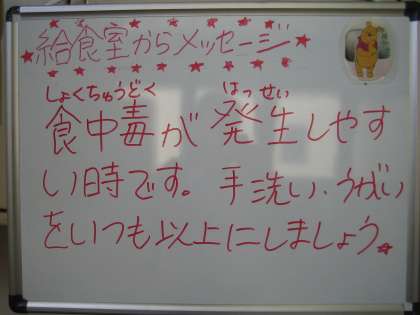 給食室からメッセージ
しょくちゅうどく はっせい
食中毒が発生しやす
い時です。手洗い、うがい
をいつも以上にしましょう。